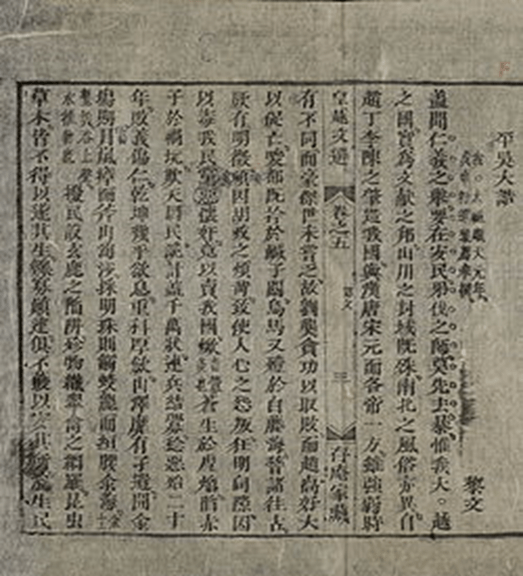 平吳大誥
黎文
蓋聞仁義之舉要在安民弔伐之師莫先去暴惟我大越
之國實為文獻之邦山川之封域既殊南北之風俗亦異自
趙丁李陳之肇造我國與漢唐宋元而各帝一方雖強弱時
皇越文選 卷之五 誥文 三 存庵家藏
有不同而豪傑世未嘗乏故劉龑貪功以取敗而趙卨好大
以促亡唆都既擒於鹹子關烏馬又殪於白藤海嵇諸往古
厥有明徵頃因胡政之煩苛致使人心之怨叛狂明伺隙因
以毒我民黨懷奸竟以賣我國焮蒼生於虐焰陷赤
子於禍坑欺天罔民詭計蓋千萬狀連兵結釁稔惡殆二十
年敗義傷仁乾坤幾乎欲息重科厚斂山澤靡有孑遺開金
場則冒嵐瘴而斧山淘沙採明珠則觸蛟龍而絙腰汆海
擾民設玄鹿之陷阱殄物織翠禽之網羅昆虫
草木皆不得以遂其生鰥寡顛連俱不獲以安其所浚生民